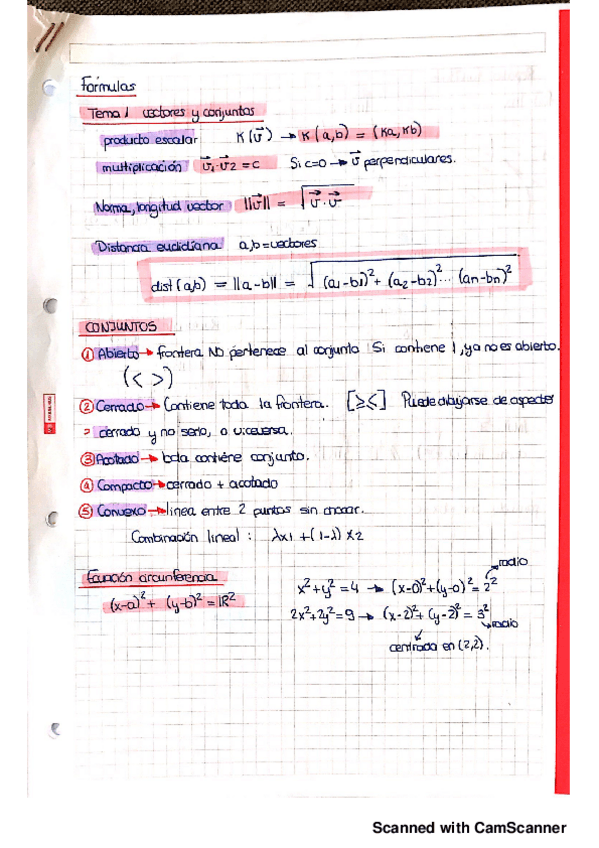 Fórmulas
Tema 1 vectores y conjuntos
producto escalar K(v⃗) → K(a,b) = (Ka, Kb)
multiplicación v⃗₁·v⃗2 = c Si c=0 → v⃗ perpendiculares.
Norma, longitud vector ||v⃗|| = √(v⃗·v⃗)
Distancia euclidiana a,b = vectores
dist (a,b) = ||a-b|| = √((a₁-b₁)²+(a₂-b₂)²... (an-bn)²)
CONJUNTOS
① Abierto → frontera NO pertenece al conjunto Si contiene 1, ya no es abierto.
(< >)
② Cerrado → Contiene toda la frontera. [≥≤] Puede dibujarse de aspecto
cerrado y no serlo, o viceversa.
③ Acotado → bola contiene conjunto.
④ Compacto → cerrado + acotado
⑤ Convexo → línea entre 2 puntos sin chocar.
Combinación lineal: λx1 + (1-λ) x2
Ecuación circunferencia
(x-a)² + (y-b)² = R²
x²+y²=4 → (x-0)²+(y-0)²=2² → radio
2x²+2y²=9 → (x-2)²+(y-2)²=3² → radio
centrada en (2,2).
Scanned with CamScanner